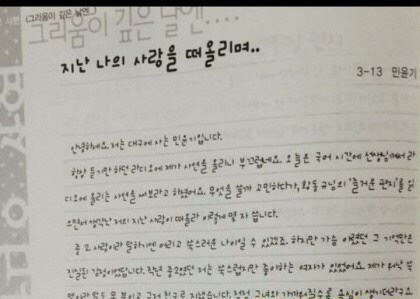 (그리움이 깊은 날엔..)
그리움이 깊은 날엔....
지난 나의 사랑을 떠올리며..
3-13 민윤기
안녕하세요. 저는 대구에 사는 민윤기입니다.
항상 듣기만 하던 라디오에 제가 사연을 올리니 부끄럽네요. 오늘은 국어 시간에 선생님께서 라
디오에 올리는 사연을 써보라고 하셨어요. 무엇을 쓸까 고민하다가, 황동규님의 '즐거운 편지'를 읽
으면서 생각난 저의 지난 사랑이 떠올라 이렇게 몇 자 씁니다.
중2 사랑이라 말하기엔 어리고 쑥스러운 나이일 수 있겠죠. 하지만 가슴 아렸던 그 기억만은
진실된 감정이었답니다. 작년 중2였던 저는 쑥스럽지만 좋아하는 여자가 있었어요. 제가 워낙 쑥